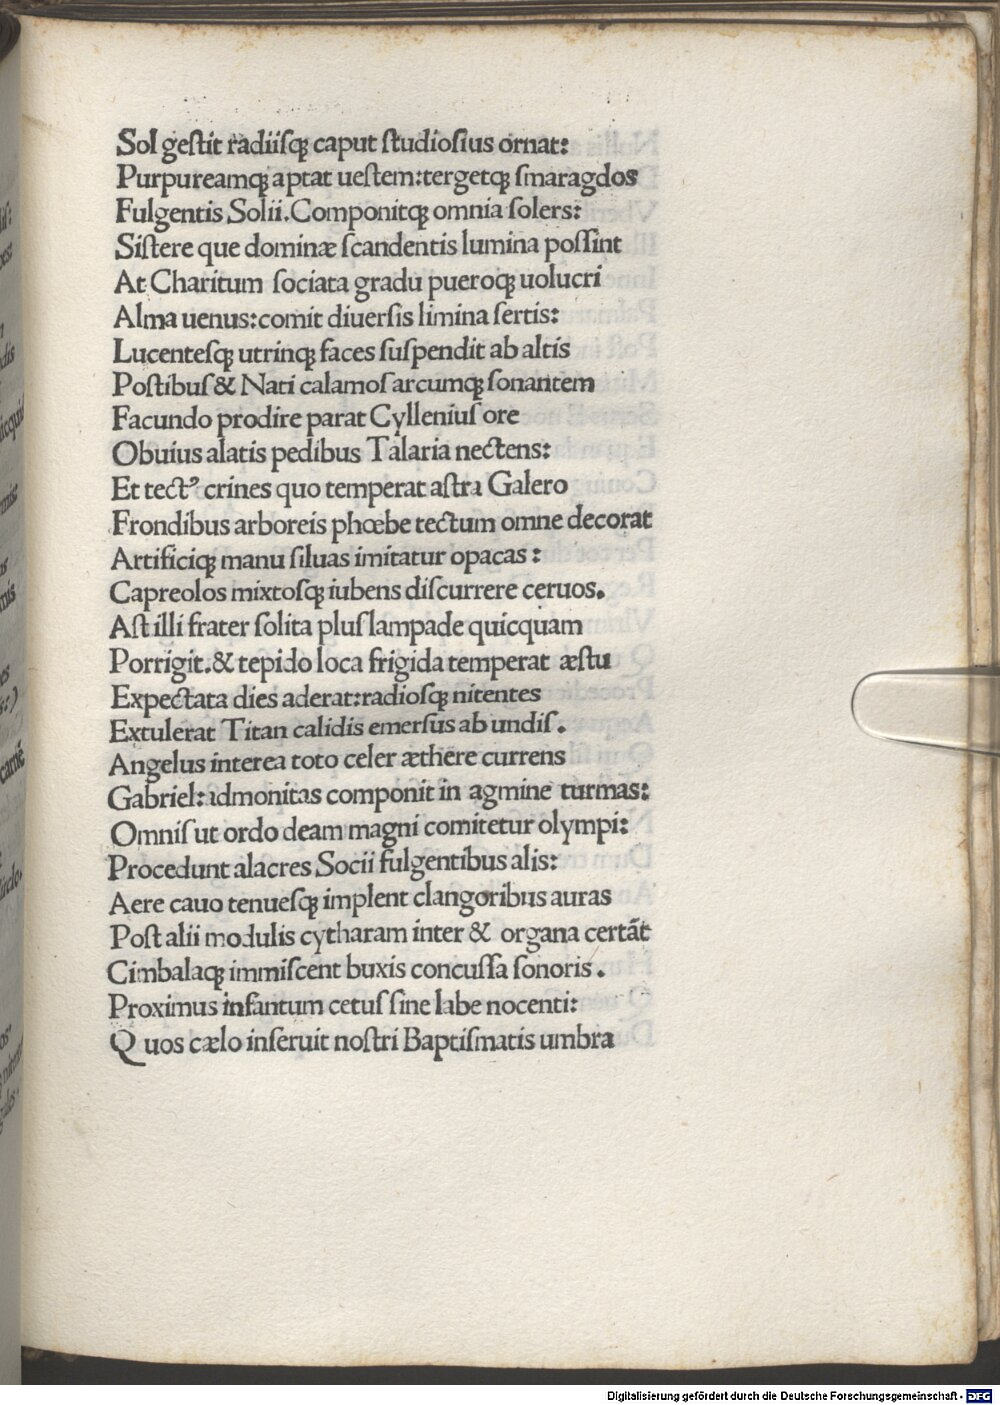 Sol gestit radiisꝗ caput studiosius ornat:
Purpureamꝗ aptat uestem: tergetꝗ smaragdos
Fulgentis Solii. Componitꝗ omnia solers:
Sistere que dominæ scandentis lumina possint
At Charitum sociata gradu pueroꝗ uolucri
Alma uenus: comit diuersis limina sertis:
Lucentesꝗ utrinꝗ faces suspendit ab altis
Postibus & Nati calamos arcumꝗ sonantem
Facundo prodire parat Cyllenius ore
Obuius alatis pedibus Talaria nectens:
Et tectꝰ crines quo temperat astra Galero
Frondibus arboreis phœbe tectum omne decorat
Artificiꝗ manu siluas imitatur opacas:
Capreolos mixtosꝗ iubens discurrere ceruos.
Ast illi frater solita plus lampade quicquam
Porrigit. & tepido loca frigida temperat æstu
Expectata dies aderat: radiosꝗ nitentes
Extulerat Titan calidis emersus ab undis.
Angelus interea toto celer æthere currens
Gabriel: admonitas componit in agmine turmas:
Omnis ut ordo deam magni comitetur olympi:
Procedunt alacres Socii fulgentibus alis:
Aere cauo tenuesꝗ implent clangoribus auras
Post alii modulis cytharam inter & organa certãt
Cimbalaꝗ immiscent buxis concussa sonoris.
Proximus infantum cetus sine labe nocenti:
Quos cælo inseruit nostri Baptismatis umbra
Digitalisierung gefördert durch die Deutsche Forschungsgemeinschaft - DFG